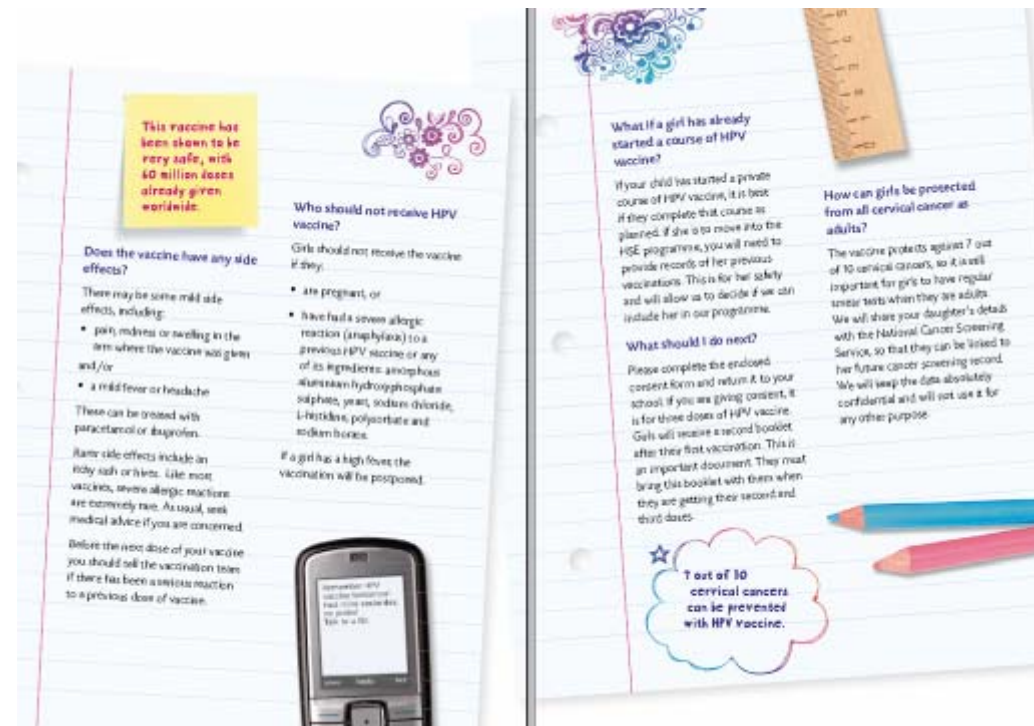 This vaccine has
been shown to be
very safe, with
60 million doses
already given
worldwide.
Does the vaccine have any side
effects?
There may be some mild side
effects, including:
• pain, redness or swelling in the
arm where the vaccine was given
and/or
• a mild fever or headache
These can be treated with
paracetamol or ibuprofen.
Rarer side effects include an
itchy rash or hives. Like most
vaccines, severe allergic reactions
are extremely rare. As usual, seek
medical advice if you are concerned.
Before the next dose of your vaccine
you should tell the vaccination team
if there has been a serious reaction
to a previous dose of vaccine.
Who should not receive HPV
vaccine?
Girls should not receive the vaccine
if they:
• are pregnant, or
• have had a severe allergic
reaction (anaphylaxis) to a
previous HPV vaccine or any
of its ingredients: amorphous
aluminium hydroxyphosphate
sulphate, yeast, sodium chloride,
L-histidine, polysorbate and
sodium borate.
If a girl has a high fever, the
vaccination will be postponed.
Remember HPV
vaccine tomorrow!
Had mine yesterday,
no probs!
What if a girl has already
started a course of HPV
vaccine?
If your child has started a private
course of HPV vaccine, it is best
if they complete that course as
planned. If she is to move into the
HSE programme, you will need to
provide records of her previous
vaccinations. This is for her safety
and will allow us to decide if we can
include her in our programme.
What should I do next?
Please complete the enclosed
consent form and return it to your
school. If you are giving consent, it
is for three doses of HPV vaccine.
Girls will receive a second booklet
after their first vaccination. This is
an important document. They must
bring this booklet with them when
they are getting their second and
third doses.
7 out of 10
cervical cancers
can be prevented
with HPV vaccine.
How can girls be protected
from all cervical cancer as
adults?
The vaccine protects against 7 out
of 10 cervical cancers, so it is still
important for girls to have regular
smear tests when they are adults.
We will share your daughter's details
with the National Cancer Screening
Service, so that they can be linked to
her future cancer screening record.
We will keep the data absolutely
confidential and will not use it for
any other purpose.